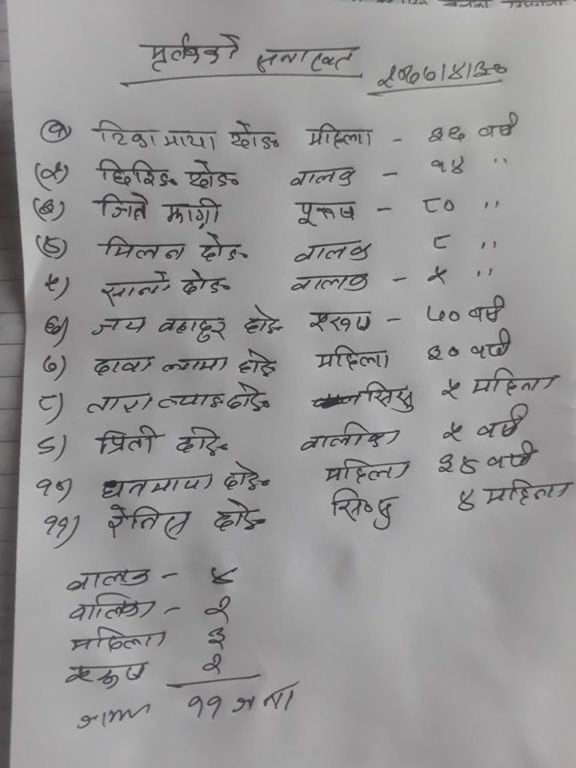 मृतकको सनाखत
२०७७/४/३०
१) टिका माया दोङ महिला - ३६ वर्ष
(२) छिरिङ दोङ बालक - १४ "
(३) जिते माग्री पुरुष - ८० "
(४) मिलन दोङ बालक ८ "
५) सानो दोङ बालक - ५ "
६) जय बहादुर दोङ पुरुष - ५० वर्ष
७) दावा लामा दोङ महिला ३० वर्ष
८) तारा दोङ सिसु ५ महिना
९) प्रिती दोङ बालिका ५ वर्ष
१०) धनमाया दोङ महिला ३४ वर्ष
११) दोङ सिसु ४ महिना
बालक - ४
बालिका - २
महिला ३
पुरुष २
११ जना